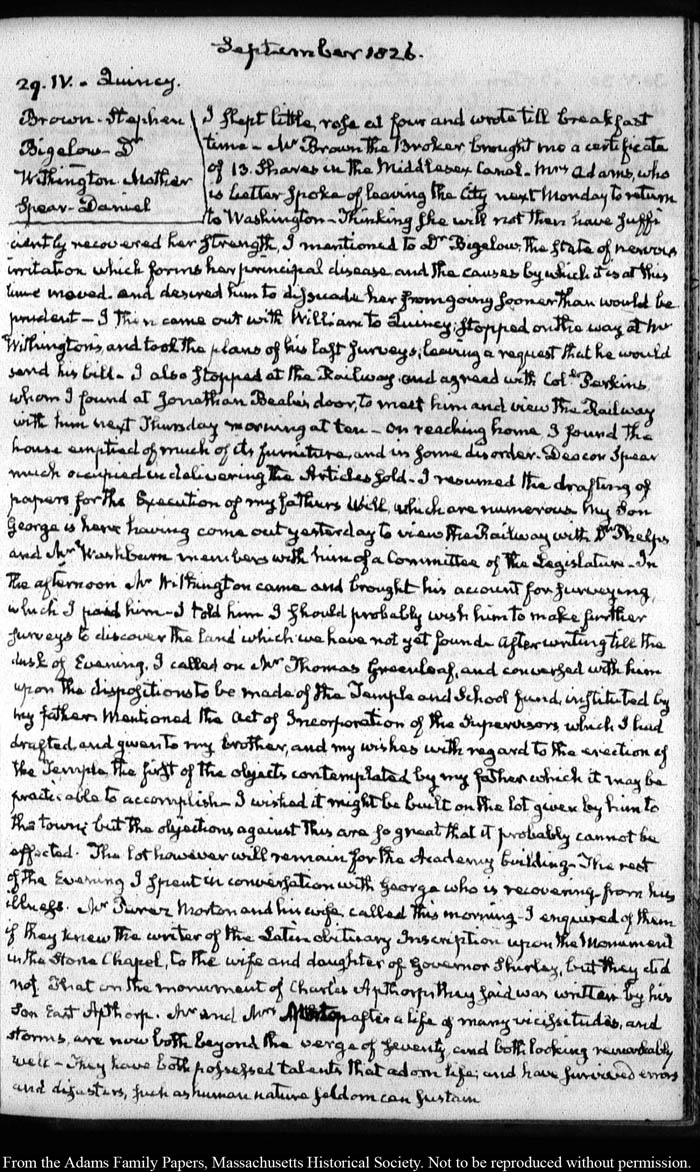 September 1826.
29. IV. Quincy.
Brown. Stephen
Bigelow. Dr
Withington Mather
Spear. Daniel
I slept little, rose at four and wrote till breakfast
time. Mr Brown the Broker brought me a certificate
of 13. Shares in the Middlesex Canal. Mrs Adams, who
is better spoke of leaving the City next Monday to return
to Washington. Thinking she will not then have suffi
ciently recovered her strength, I mentioned to Dr Bigelow, the state of nervous
irritation which forms her principal disease, and the causes by which it is at this
time moved. and desired him to dissuade her from going sooner than would be
prudent. I then came out with William to Quincy; stopped on the way at Mr
Withington's, and took the plans of his last surveys; leaving a request that he would
send his bill. I also stopped at the Railway and agreed with Coll. Perkins,
whom I found at Jonathan Beale's door, to meet him and view the Railway
with him next Thursday morning at ten. On reaching home, I found the
house emptied of much of its furniture, and in some disorder. Deacon Spear
much occupied in delivering the Articles sold. I resumed the drafting of
papers for the Execution of my fathers Will, which are numerous. My Son
George is here having come out yesterday to view the Railway with Dr Phelps
and Mr Washburn members with him of a Committee of the Legislature. In
the afternoon Mr Withington came and brought his account for surveying,
which I paid him. I told him I should probably wish him to make further
surveys to discover the land which we have not yet found. After writing till the
dusk of Evening, I called on Mr Thomas Greenleaf, and conversed with him
upon the dispositions to be made of the Temple and School fund, instituted by
my father. Mentioned the Act of Incorporation of the Supervisors which I had
drafted, and given to my brother, and my wishes with regard to the erection of
the Temple, the first of the objects contemplated by my father which it may be
practicable to accomplish. I wished it might be built on the lot given by him to
the town; but the objections against this are so great that it probably cannot be
effected. The lot however will remain for the Academy building. The rest
of the Evening I spent in conversation with George who is recovering from his
illness. Mr Perez Morton and his wife called this morning. I enquired of them
if they knew the writer of the Latin obituary Inscription upon the Monument
in the Stone Chapel, to the wife and daughter of Governor Shirley, but they did
not. That on the monument of Charles Apthorp, they said was written by his
Son East Apthorp. Mr and Mrs after a life of many vicissitudes, and
storms, are now both beyond the verge of seventy, and both looking remarkably
well. They have both possessed talents that adorn life; and have survived errors
and disasters, such as human nature seldom can sustain
From the Adams Family Papers, Massachusetts Historical Society. Not to be reproduced without permission.